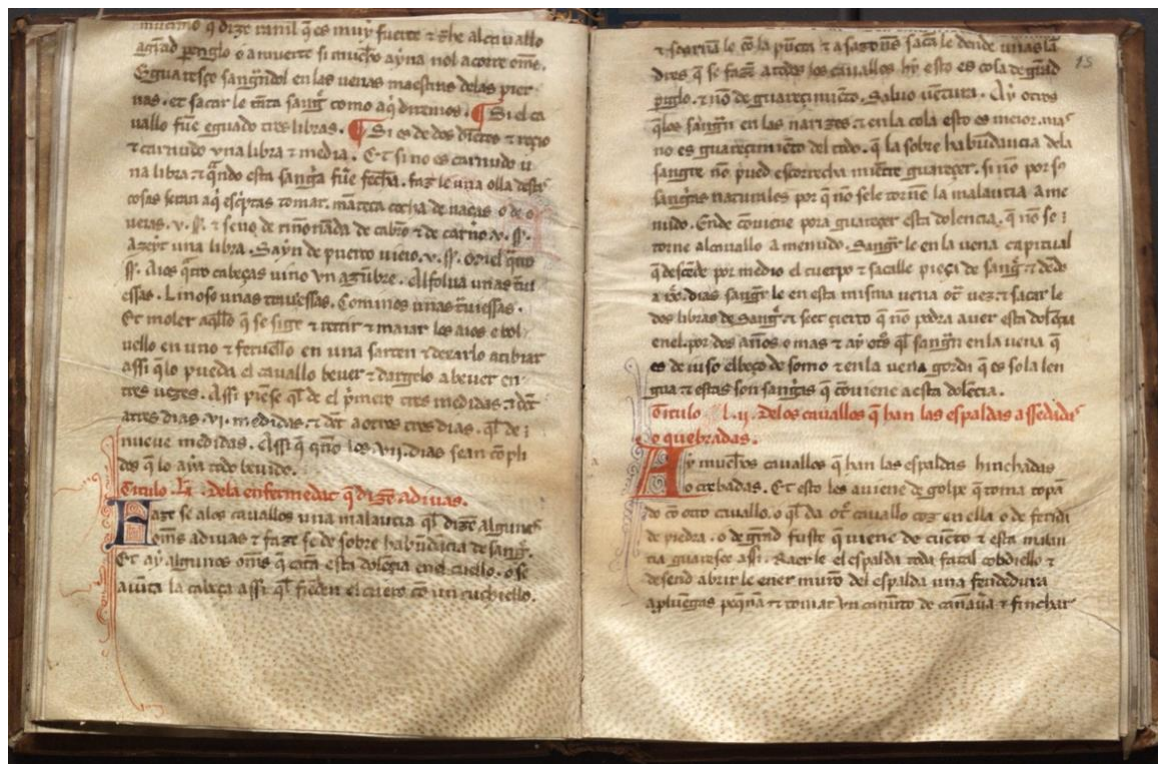 q dize ramil q̃ es muy fuerte ⁊ al cauallo
o a muerte si mucho ayna nol acorre ome.
E guaresçe sangrãdol en las uenas maestras delas pier
nas. et sacar le tãta sangr̃ como aq̃ diremos. ¶ Si el ca
uallo fue eguado tres libras. ¶ Si es de dos diẽtes ⁊ rezio
⁊ carnudo vna libra ⁊ media. Et si no es carnudo u
na libra. ⁊ q̃ndo esta sangr̃a fue fecha. faz le una olla destas
cosas seran aq̃ esc̃ptas tomar. mãteca cocha de uacas o de o
ueias. v. ff. ⁊ seuo de riñonada de cabrõ ⁊ de carno. v. ff.
azeyte una libra. Sayn de puerco uieio. v. ff.
ff. Aios q̃tro cabeças uino vn açũbre. Alfolua unas
essas. Linoso unas trauessas. Cominos unas tuiessas.
Et moler aq̃llo q̃ se ⁊ maiar los aios e bol
uello en uno ⁊ feruello en una sarten ⁊ dexarlo atibiar
assi q̃ lo pueda el cauallo beuer ⁊ dargelo a beuer en
tres uezes. Assi q̃l de el p̃mero tres medidas. ⁊ dẽt
a tres dias. vi. medidas. ⁊ dẽt a otros tres dias. q̃l de
nueue medidas. Assi q̃ q̃ndo los vii. dias sean cõpli
dos q̃ lo aya todo beuido.
Titulo .Lã. dela enfermedat q̃ dizẽ adiuas.
Faze se alos cauallos una malautia q̃l dizẽ algunos
oms adiuas ⁊ faze se de sobre habũdãcia de sangr̃.
Et ay algunos oms q̃ esta dolẽçia en el cuello. o se
la cabeça assi q̃l fiẽden el cuero cõ un cuchiello.
15
le cõ la pũta ⁊ a sazones saca le dende unas la
dres q̃ se fazẽ a todos los cauallos ⁊ esto es cosa de grãd
⁊ nõ de guaresçimiẽto. Saluo uẽtura. Ay otros
q̃ los sangrã en las narizes. ⁊ en la cola esto es meior. mas
no es guaresçimiẽto del todo. q̃ la sobre habũdançia dela
sangre nõ pued escorrecha miẽtre guareçer. si nõ por sus
sangr̃ias naturales por q̃ nõ sele torne la malautia a me
nudo. Ende cõuiene pora guareçer esta dolençia. q̃ nõ se
torne al cauallo a menudo. Sangr̃ le en la uena capitual
q̃ desçẽde por medio el cuerpo ⁊ sacalle pieça de sangr̃ ⁊ dẽdo
a dias sangr̃ le en esta misma uena otr̃ uez. ⁊ sacar le
dos libras de sangr̃. ⁊ seet çierto q̃ nõ podra auer esta dolẽçia
enel por dos años o mas ⁊ ay otõs q̃l sangrã en la uena q̃
es de iuso el beço de somo ⁊ en la uena gorda q̃ es so la len
gua. ⁊ estas son sangr̃as q̃ cõuiene a esta dolẽçia.
Titulo .L.ij. Delos cauallos q̃ han las espaldas assedadas
o quebradas.
Ay muchos cauallos q̃ han las espaldas hinchadas
o crebadas. Et esto les auiene de golpe q̃ toma topã
do cõ otro cauallo. o q̃l da otr̃ cauallo coz en ella o de ferida
de piedra. o de grãd fuste q̃ uiene de cuero ⁊ esta malau
tia guaresçe assi. Raer le el espalda toda fata el cobdiello ⁊
desend abrir le en el del espalda una fendedura
peq̃ña ⁊ tomar vn cañuto de cañaũa ⁊ finchar